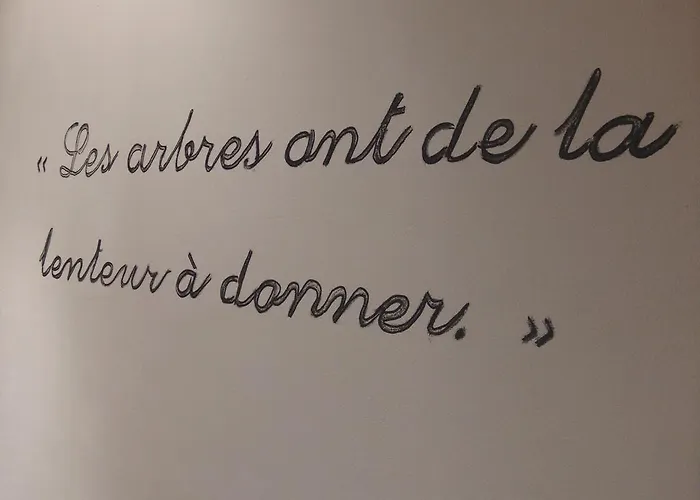 « Les arbres ont de la
lenteur à donner. »